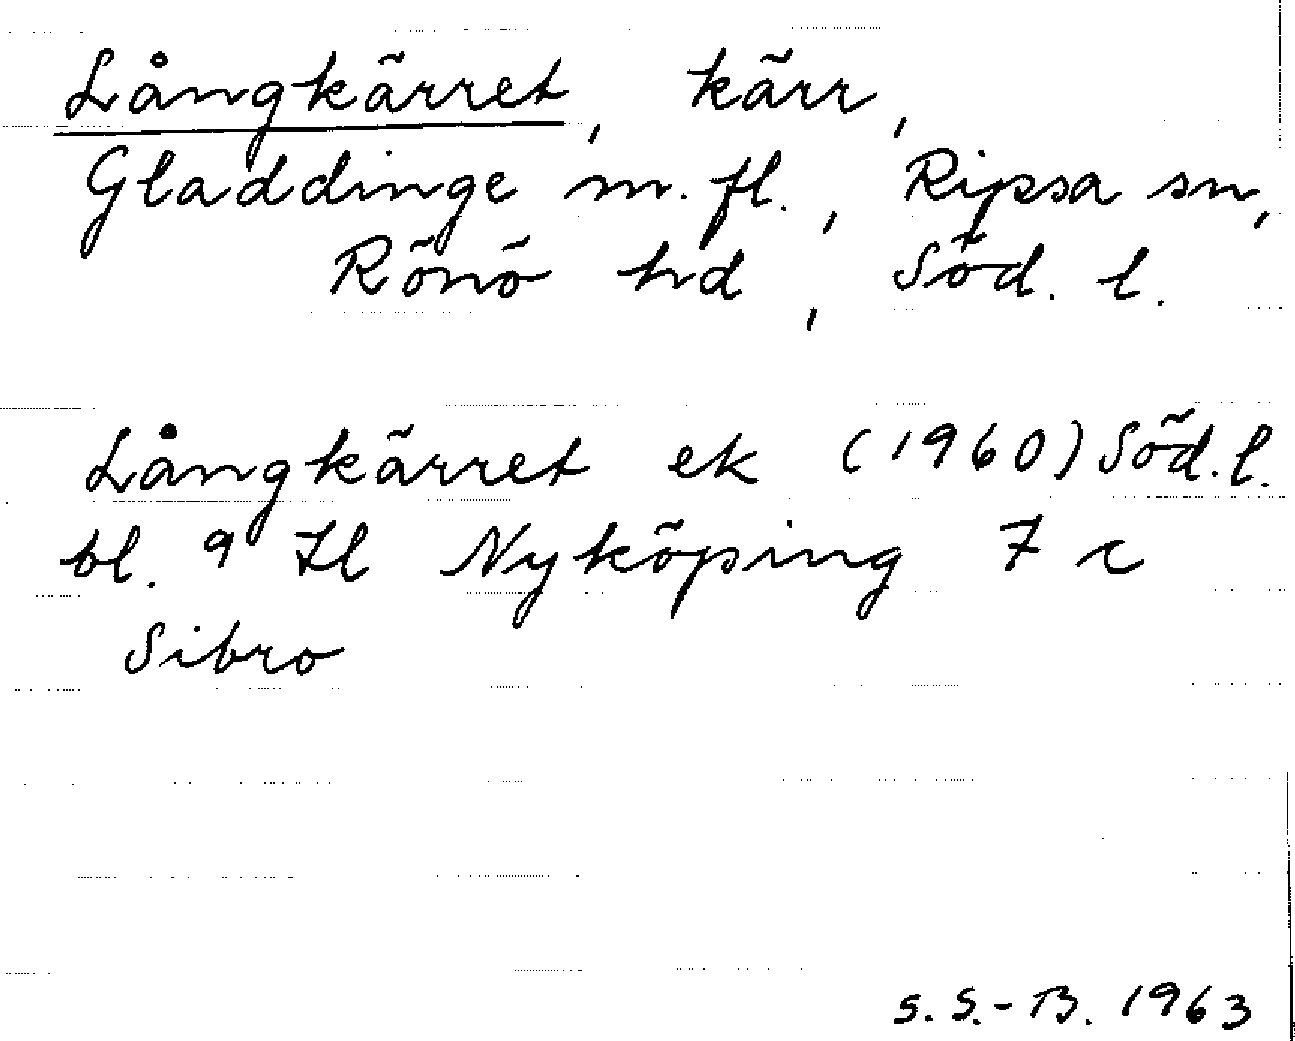 Långkärret, kärr,
Gladdinge m. fl., Ripsa sn,
Rönö hd, Söd. l.
Långkärret ek (1960) Söd. l.
bl. 9 H Nyköping 7 c
Sibro
S. S.-B. 1963